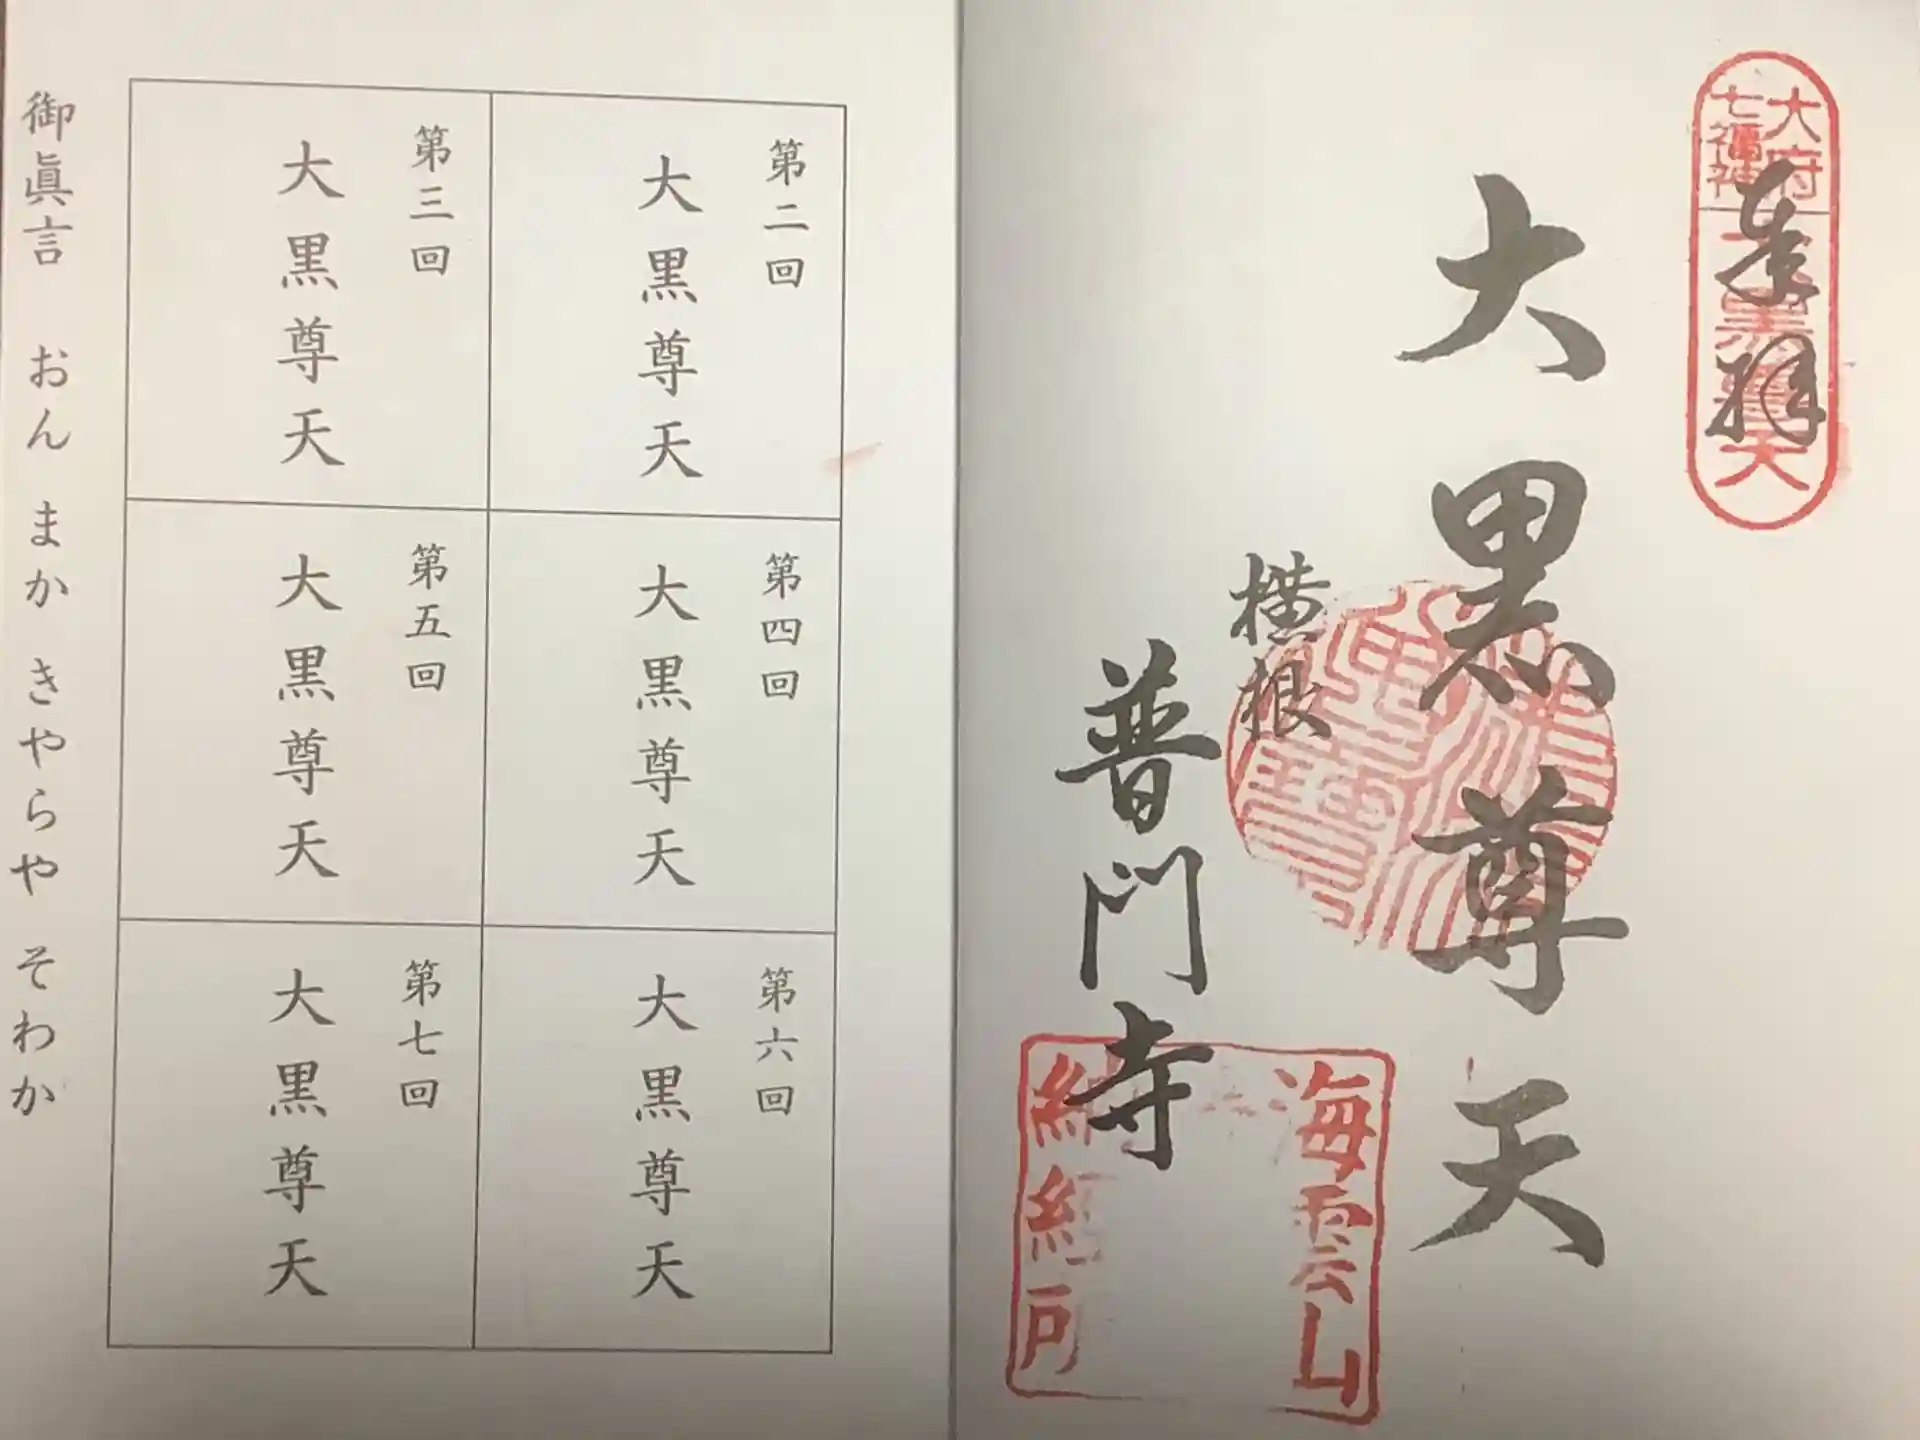 大府
七福神
大黒尊天
奉拝
大黒尊天
横根
普門寺
海雲山
納経所
第二回
大黒尊天
第三回
大黒尊天
第四回
大黒尊天
第五回
大黒尊天
第六回
大黒尊天
第七回
大黒尊天
御眞言　おん　まか　きやらや　そわか